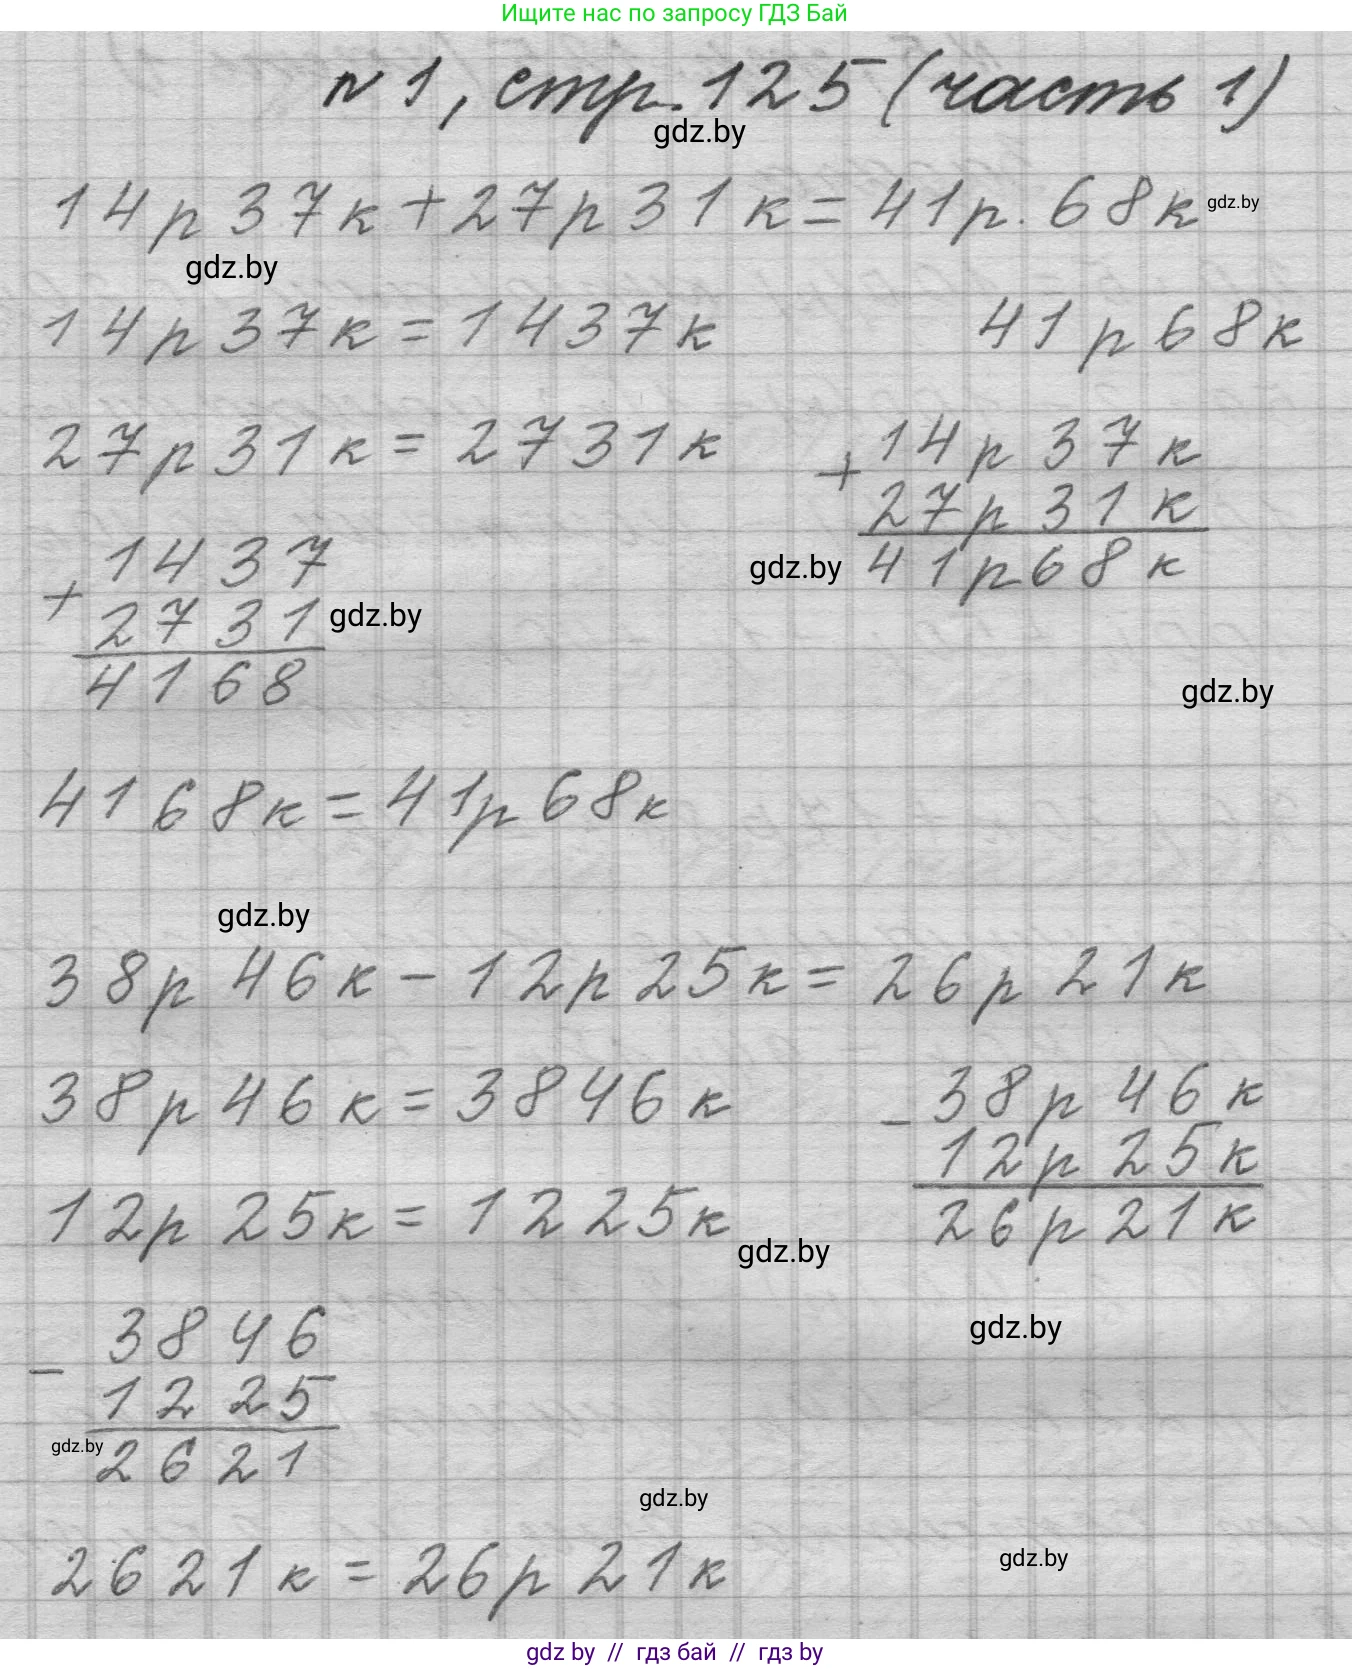 Ищите нас по запросу ГДЗ Бай
№1, стр. 125 (часть 1)
gdz.by
14р 37к + 27р 31к = 41р. 68к gdz.by
gdz.by
14р 37к = 1437к
41р 68к
27р 31к = 2731к
+ 14р 37к
27р 31к
gdz.by 41р 68к
+ 1437
2731 gdz.by
4168
gdz.by
4168к = 41р 68к
gdz.by
38р 46к - 12р 25к = 26р 21к
38р 46к = 3846к
- 38р 46к
12р 25к
26р 21к
12р 25к = 1225к
gdz.by
gdz.by
- 3846
1225
gdz.by 2621
gdz.by
gdz.by
2621к = 26р 21к
gdz by // гдз бай // гдз by